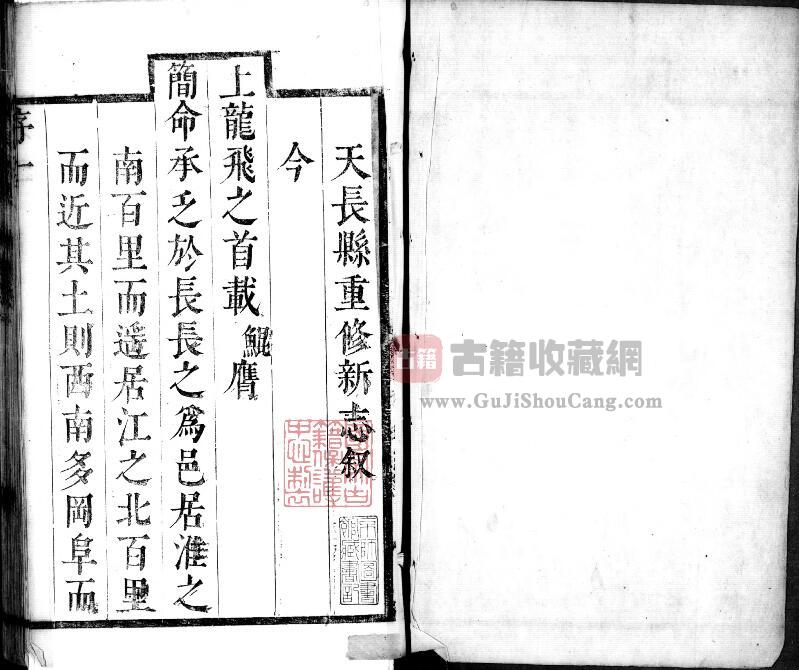 天長縣重修新志叙
今
上龍飛之首載鯤膺
簡命承乏於長長之為邑居淮之
南百里而遥居江之北百里
而近其土則西南多岡阜而
序一
古籍
古籍收藏網
www.GuJiShouCang.com